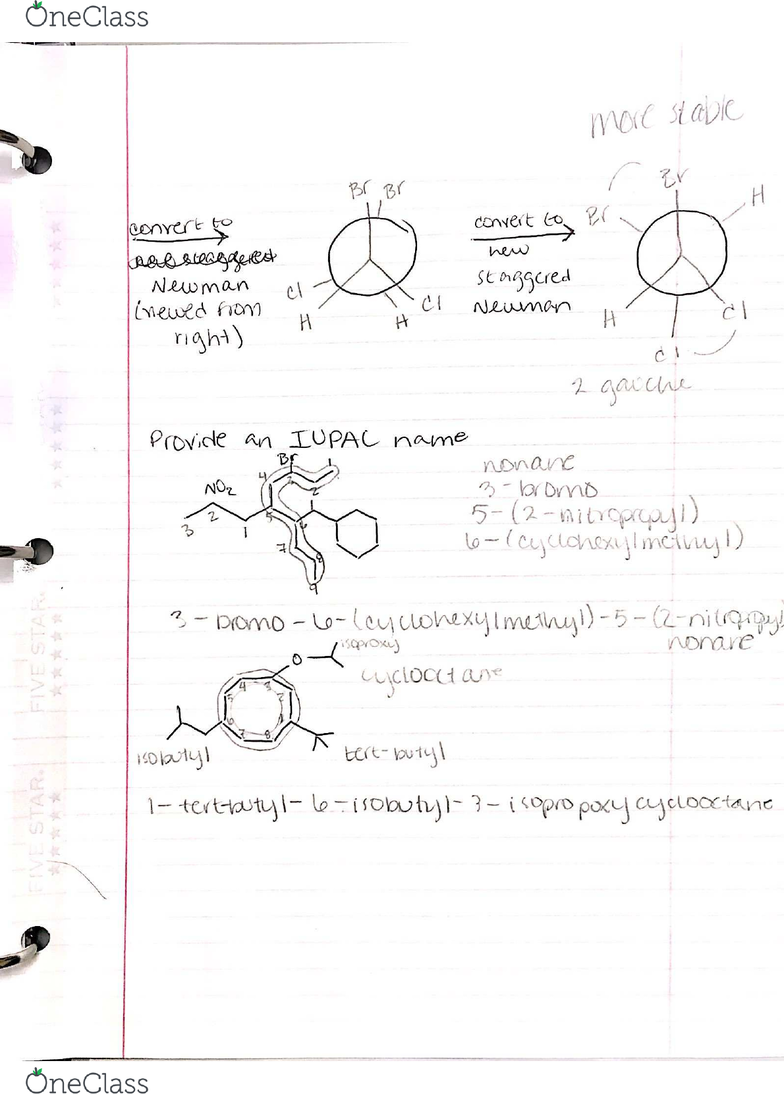 OneClass
more stable
Br Br
Br
Br
H
convert to
convert to
new
staggered
Newman
Newman
(viewed from
right)
Cl
H
H
Cl
H
Cl
Cl
2 gauche
Provide an IUPAC name
Br
NO2
1
2
3
4
5
6
7
8
9
3
2
1
2
nonane
3-bromo
5-(2-nitropropyl)
6-(cyclohexylmethyl)
3-bromo-6-(cyclohexylmethyl)-5-(2-nitropropyl
nonane
O
isoproxy
cyclooctane
1
2
3
4
5
6
7
8
isobutyl
tert-butyl
1-tert-butyl-6-isobutyl-3-isopropoxycyclooctane
FIVE STAR.
FIVE STAR.
OneClass